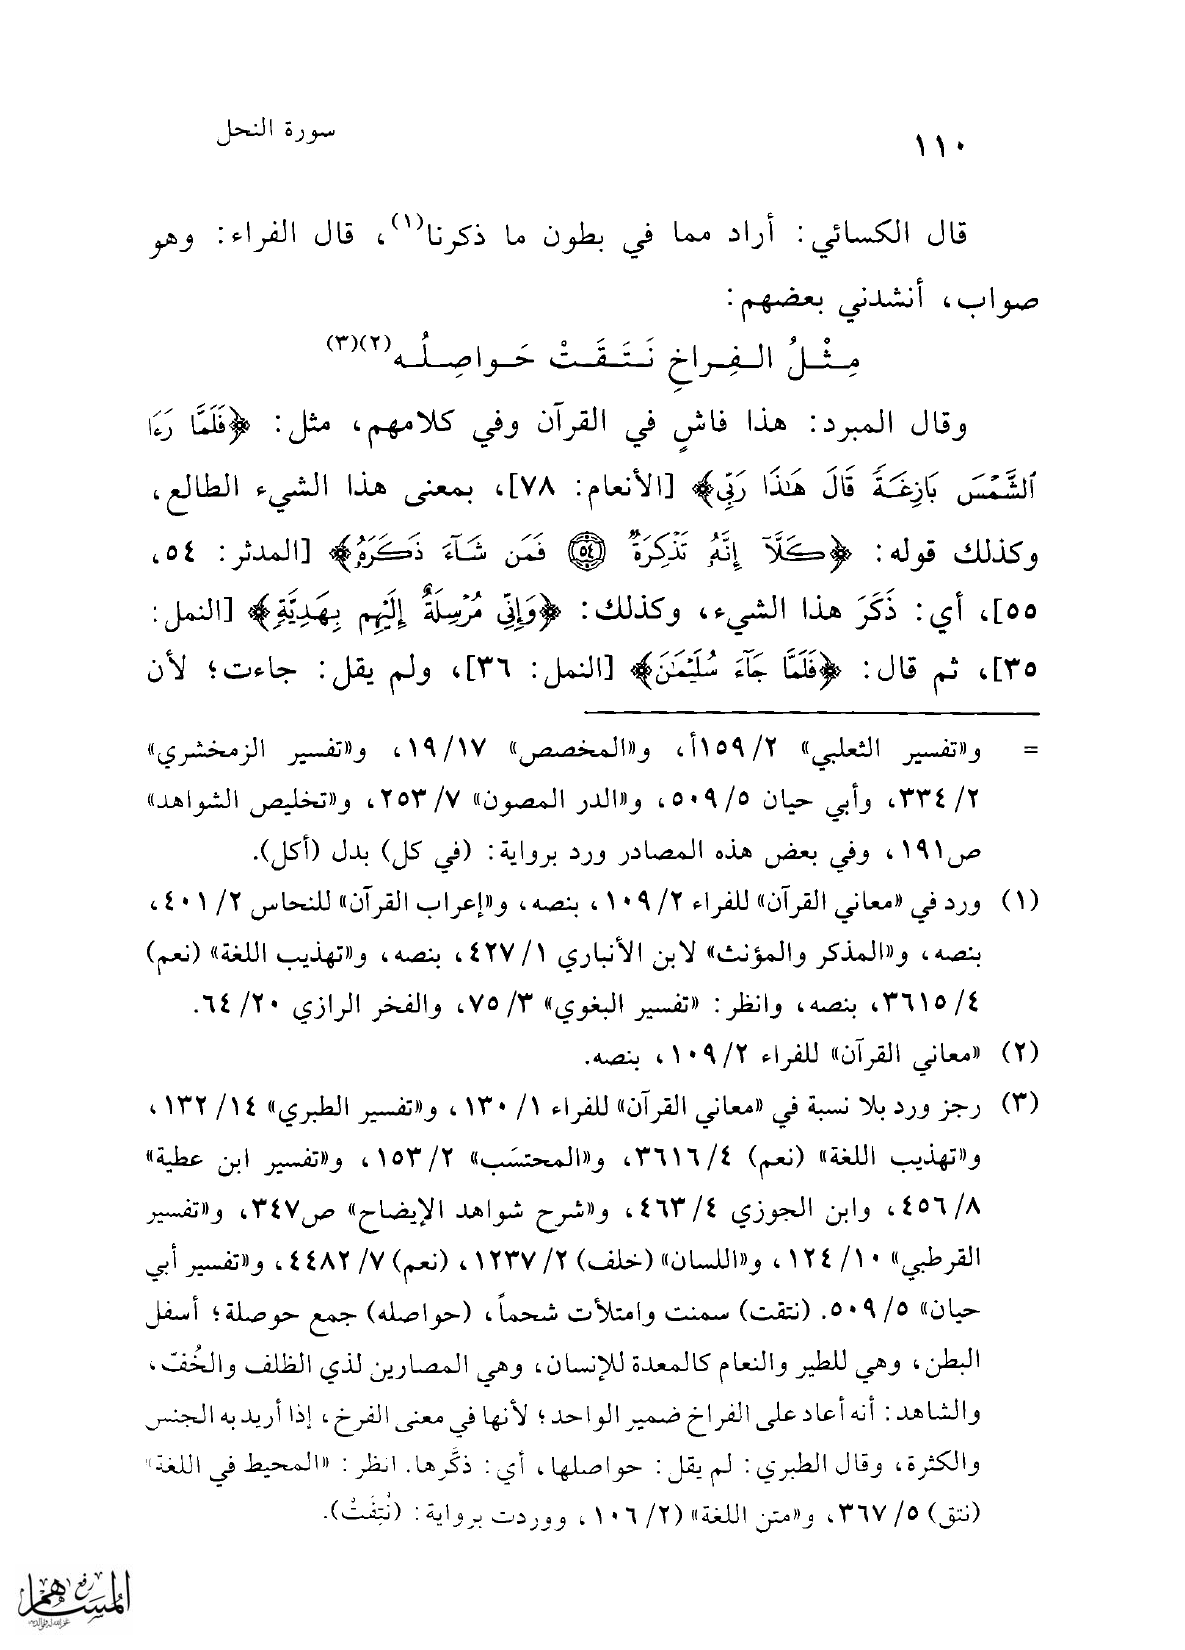 ١١٠
سورة النحل
قال الكسائي: أراد مما في بطون ما ذكرنا(١)، قال الفراء: وهو
صواب، أنشدني بعضهم:
مِثْلُ الفِراخِ نَتَقَتْ حَواصِلُه(٢)(٣)
وقال المبرد: هذا فاشٍ في القرآن وفي كلامهم، مثل: ﴿فَلَمَّا رَءَا
ٱلشَّمْسَ بَازِغَةً قَالَ هَٰذَا رَبِّي﴾ [الأنعام: ٧٨]، بمعنى هذا الشيء الطالع،
وكذلك قوله: ﴿كَلَّآ إِنَّهُۥ تَذْكِرَةٌ ٥٤ فَمَن شَآءَ ذَكَرَهُۥ﴾ [المدثر: ٥٤،
٥٥]، أي: ذَكَرَ هذا الشيء، وكذلك: ﴿وَإِنِّي مُرْسِلَةٌ إِلَيْهِم بِهَدِيَّةٍ﴾ [النمل:
٣٥]، ثم قال: ﴿فَلَمَّا جَآءَ سُلَيْمَٰنَ﴾ [النمل: ٣٦]، ولم يقل: جاءت؛ لأن
= و«تفسير الثعلبي» ٢/ ١٥٩أ، و«المخصص» ١٧/ ١٩، و«تفسير الزمخشري»
٢/ ٣٣٤، وأبي حيان ٥/ ٥٠٩، و«الدر المصون» ٧/ ٢٥٣، و«تخليص الشواهد»
ص١٩١، وفي بعض هذه المصادر ورد برواية: (في كل) بدل (أكل).
(١) ورد في «معاني القرآن» للفراء ٢/ ١٠٩، بنصه، و«إعراب القرآن» للنحاس ٢/ ٤٠١،
بنصه، و«المذكر والمؤنث» لابن الأنباري ١/ ٤٢٧، بنصه، و«تهذيب اللغة» (نعم)
٤/ ٣٦١٥، بنصه، وانظر: «تفسير البغوي» ٣/ ٧٥، والفخر الرازي ٢٠/ ٦٤.
(٢) «معاني القرآن» للفراء ٢/ ١٠٩، بنصه.
(٣) رجز ورد بلا نسبة في «معاني القرآن» للفراء ١/ ١٣٠، و«تفسير الطبري» ١٤/ ١٣٢،
و«تهذيب اللغة» (نعم) ٤/ ٣٦١٦، و«المحتسَب» ٢/ ١٥٣، و«تفسير ابن عطية»
٨/ ٤٥٦، وابن الجوزي ٤/ ٤٦٣، و«شرح شواهد الإيضاح» ص٣٤٧، و«تفسير
القرطبي» ١٠/ ١٢٤، و«اللسان» (خلف) ٢/ ١٢٣٧، (نعم) ٧/ ٤٤٨٢، و«تفسير أبي
حيان» ٥/ ٥٠٩. (نتقت) سمنت وامتلأت شحماً، (حواصله) جمع حوصلة؛ أسفل
البطن، وهي للطير والنعام كالمعدة للإنسان، وهي المصارين لذي الظلف والخُفّ،
والشاهد: أنه أعاد على الفراخ ضمير الواحد؛ لأنها في معنى الفرخ، إذا أريد به الجنس
والكثرة، وقال الطبري: لم يقل: حواصلها، أي: ذكَّرها. انظر: «المحيط في اللغة»
(نتق) ٥/ ٣٦٧، و«متن اللغة» (٢/ ١٠٦، ووردت برواية: (نُتِفَتْ).